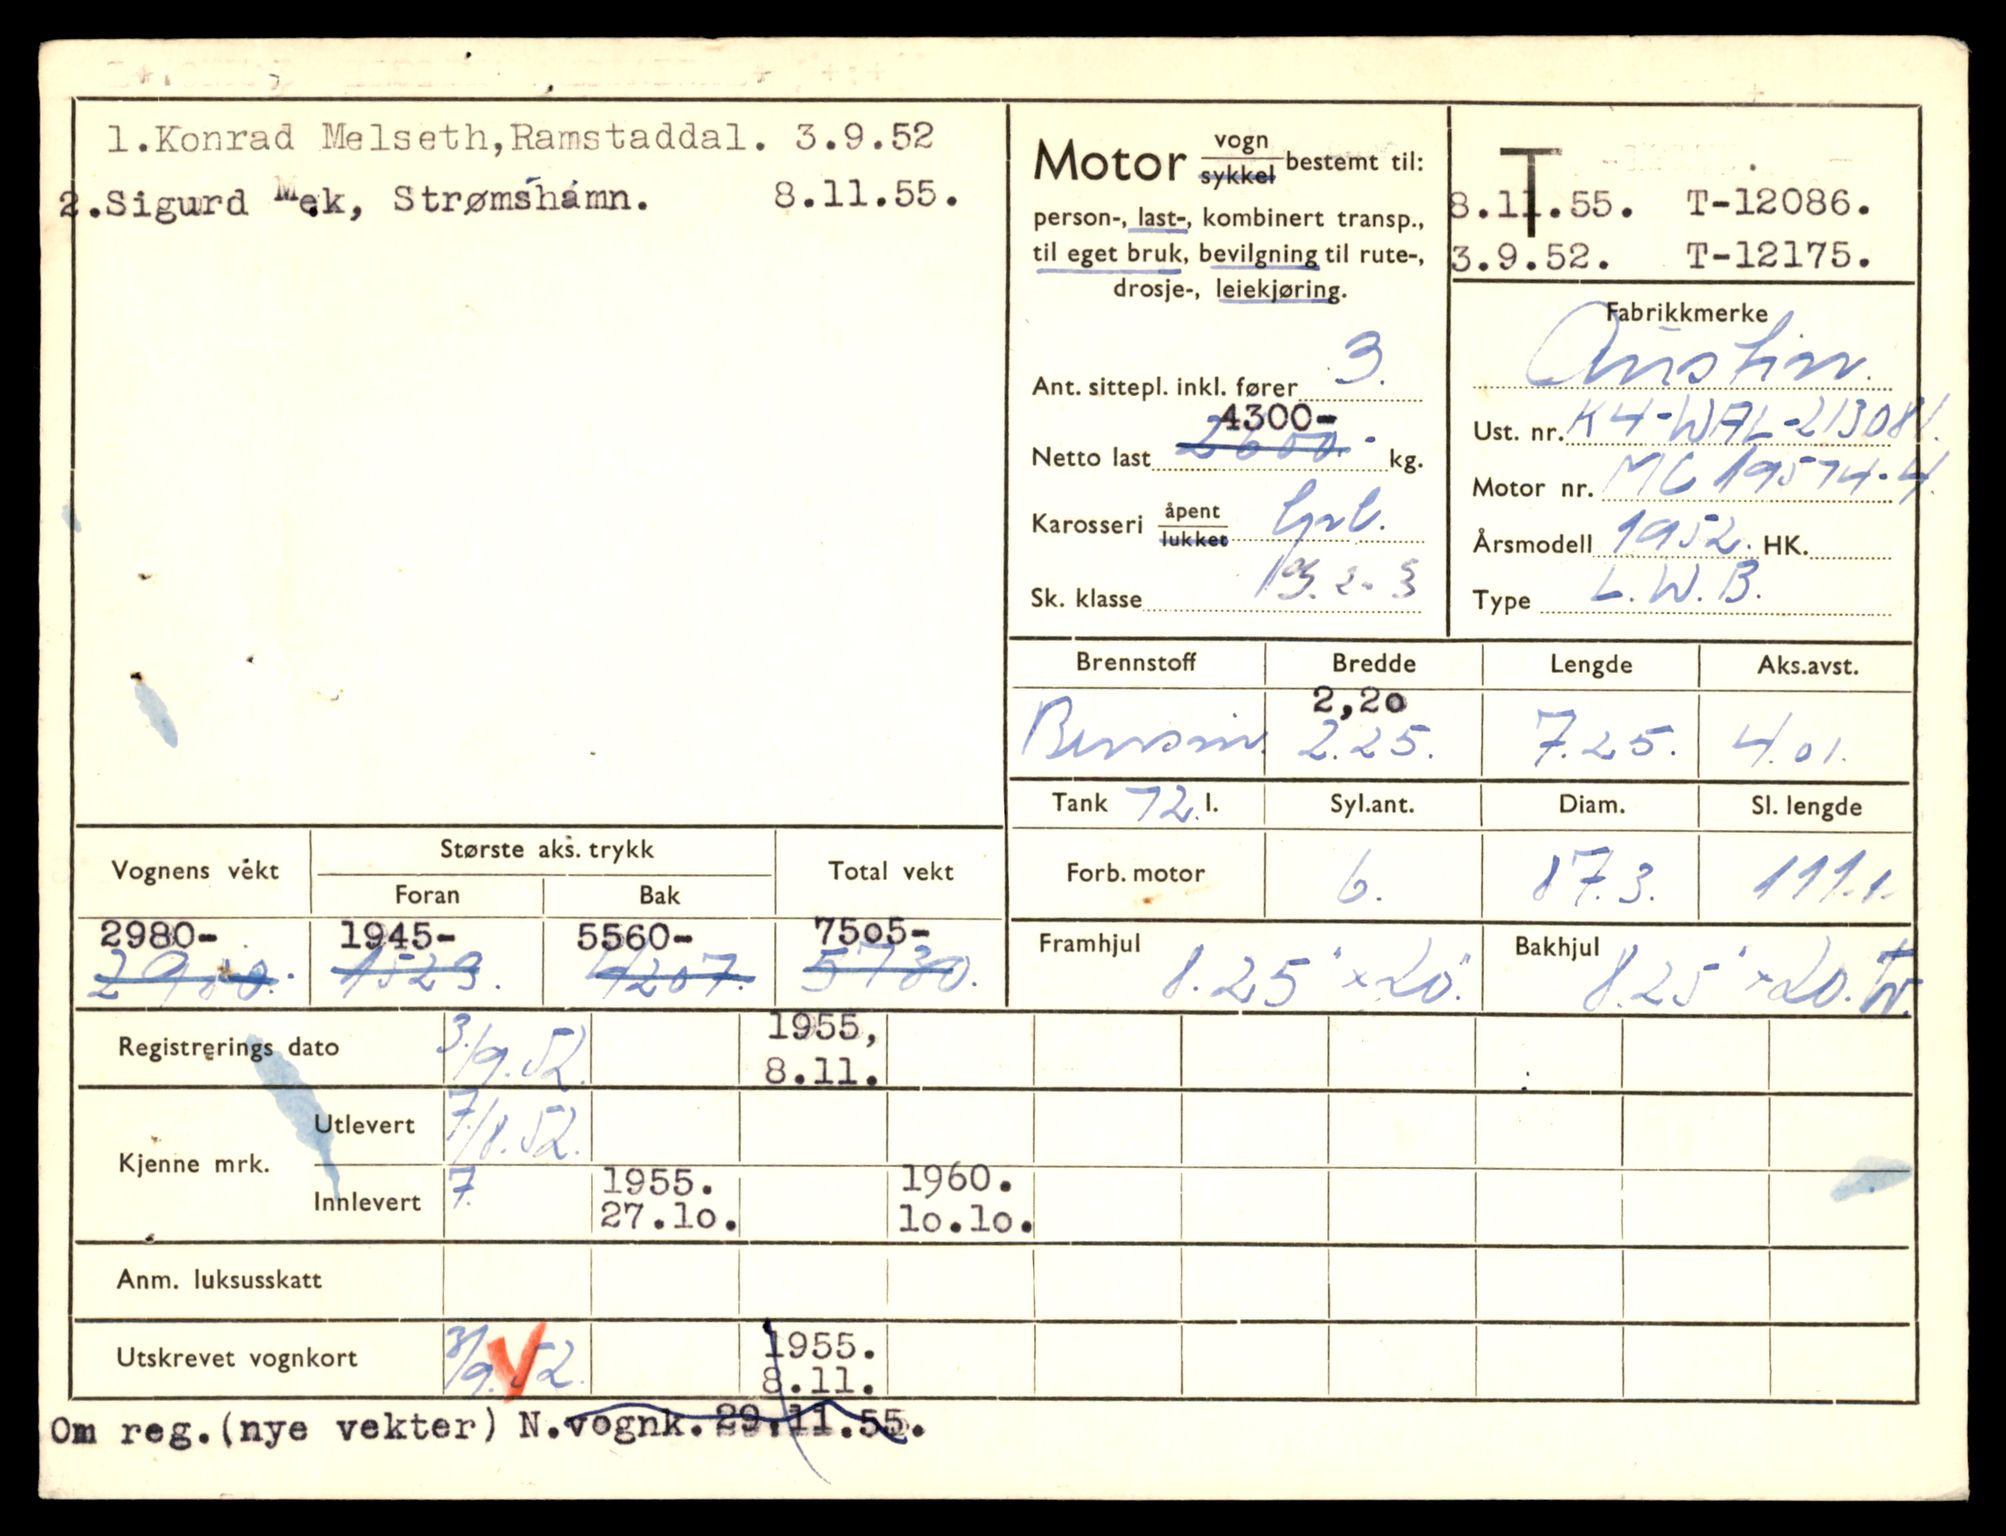 1.Konrad Melseth,Ramstaddal. 3.9.52
2.Sigurd Mek, Strømshamn. 8.11.55.
Motor vogn sykkel bestemt til:
person-, last-, kombinert transp.,
til eget bruk, bevilgning til rute-,
drosje-, leiekjøring.
Ant. sittepl. inkl. fører 3.
4300-
Netto last 2600.- kg.
Karosseri åpent lukket
Sk. klasse
T
8.11.55. T-12086.
3.9.52. T-12175.
Fabrikkmerke
Austin.
Ust. nr. K4-WAL-213081.
Motor nr. MC 19574-4.
Årsmodell 1952. HK.
Type L.W.B.
Brennstoff Bredde Lengde Aks.avst.
2,20
Bensin. 2.25. 7.25. 4.01.
Tank 72 l. Syl.ant. Diam. Sl. lengde
Forb. motor 6. 87.3. 111.1.
Framhjul 8.25" x 20" Bakhjul 8.25" x 20. Tv.
Vognens vekt Største aks. trykk Total vekt
Foran Bak
2980- 1945- 5560- 7505-
2980.- 1529. 4207. 5730.
Registrerings dato 3/9.52. 1955, 8.11.
Kjenne mrk. Utlevert 7/8.52.
Innlevert 7. 1955. 27.10. 1960. 10.10.
Anm. luksusskatt
Utskrevet vognkort 3/9.52. V 1955. 8.11.
Om reg.(nye vekter) N.vognk.29.11.55.